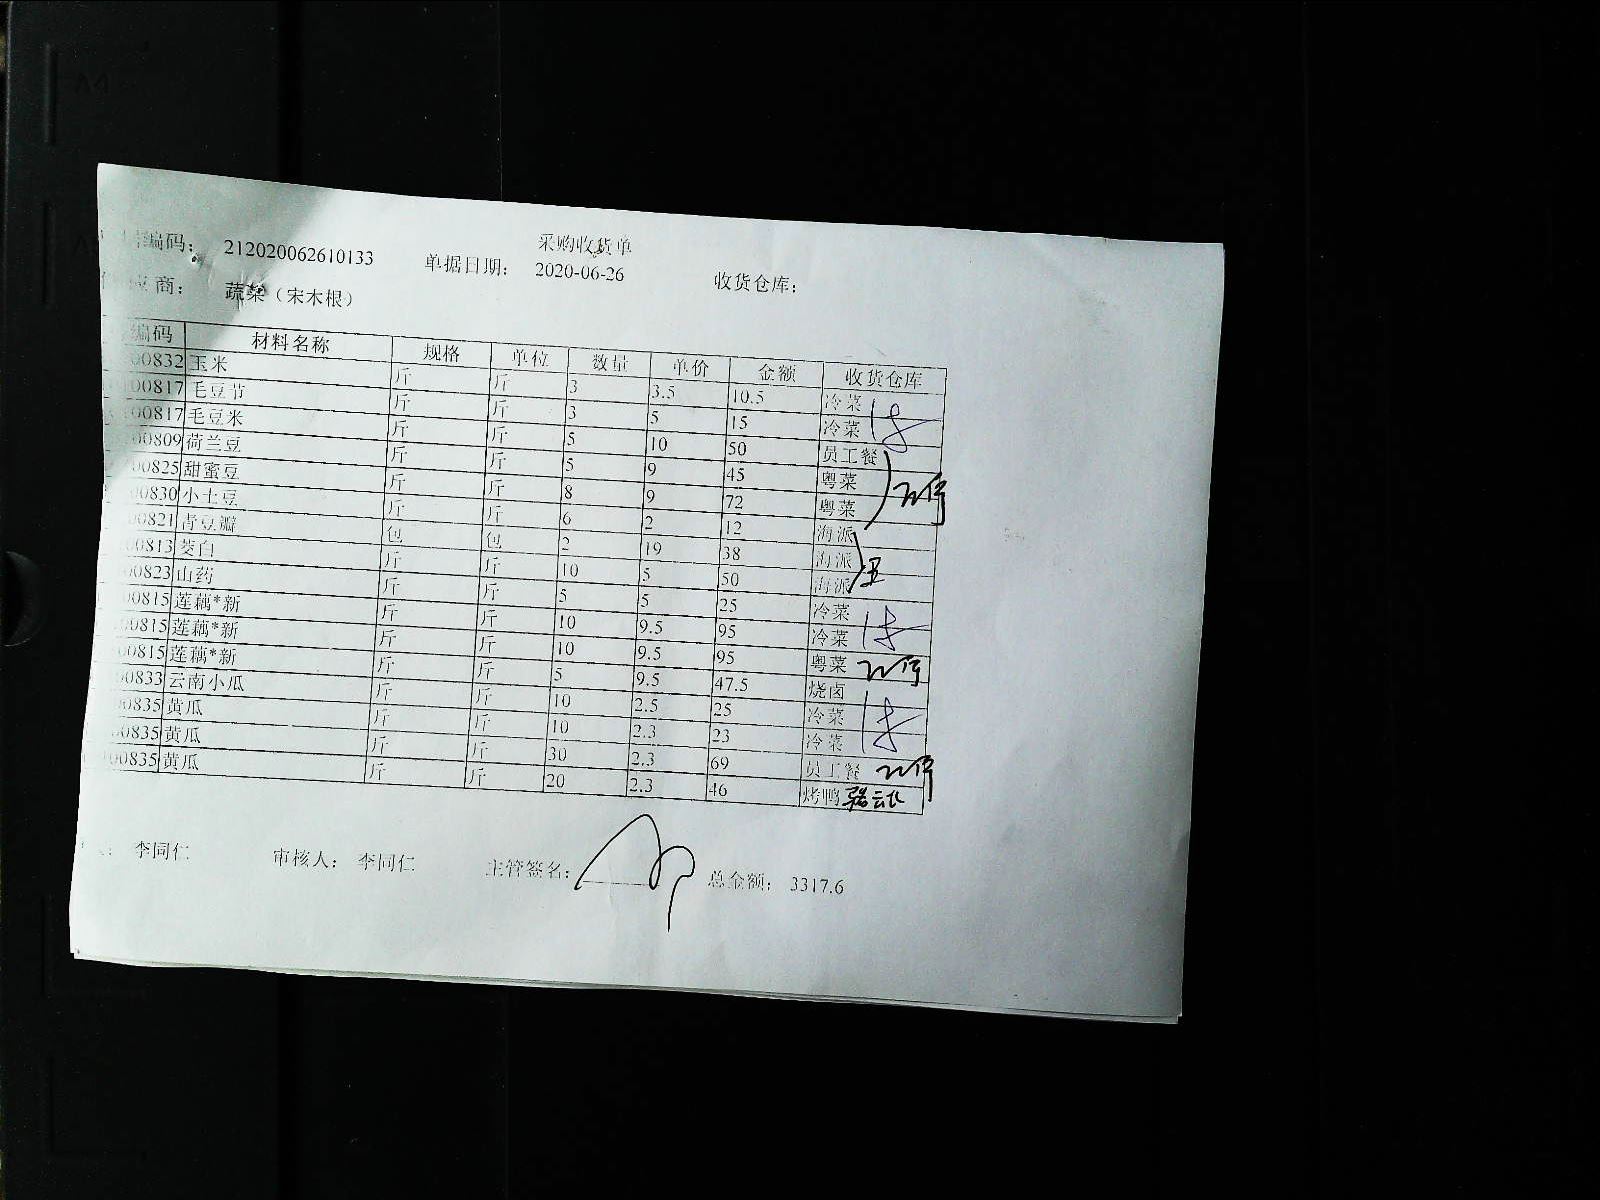 采购收货单
编码： 212020062610133 单据日期： 2020-06-26 收货仓库：
商： 蔬菜（宋木根）
编码 材料名称 规格 单位 数量 单价 金额 收货仓库
00832 玉米 斤 斤 3 3.5 10.5 冷菜
00817 毛豆节 斤 斤 3 5 15 冷菜
00817 毛豆米 斤 斤 5 10 50 员工餐
00809 荷兰豆 斤 斤 5 9 45 粤菜
00825 甜蜜豆 斤 斤 8 9 72 粤菜
00830 小土豆 斤 斤 6 2 12 海派
00821 青豆瓣 包 包 2 19 38 海派
00813 茭白 斤 斤 10 5 50 海派
00823 山药 斤 斤 5 5 25 冷菜
00815 莲藕*新 斤 斤 10 9.5 95 冷菜
00815 莲藕*新 斤 斤 10 9.5 95 粤菜
00815 莲藕*新 斤 斤 5 9.5 47.5 烧卤
00833 云南小瓜 斤 斤 10 2.5 25 冷菜
00835 黄瓜 斤 斤 10 2.3 23 冷菜
00835 黄瓜 斤 斤 30 2.3 69 员工餐
00835 黄瓜 斤 斤 20 2.3 46 烤鸭
李同仁 审核人： 李同仁 主管签名： 总金额： 3317.6